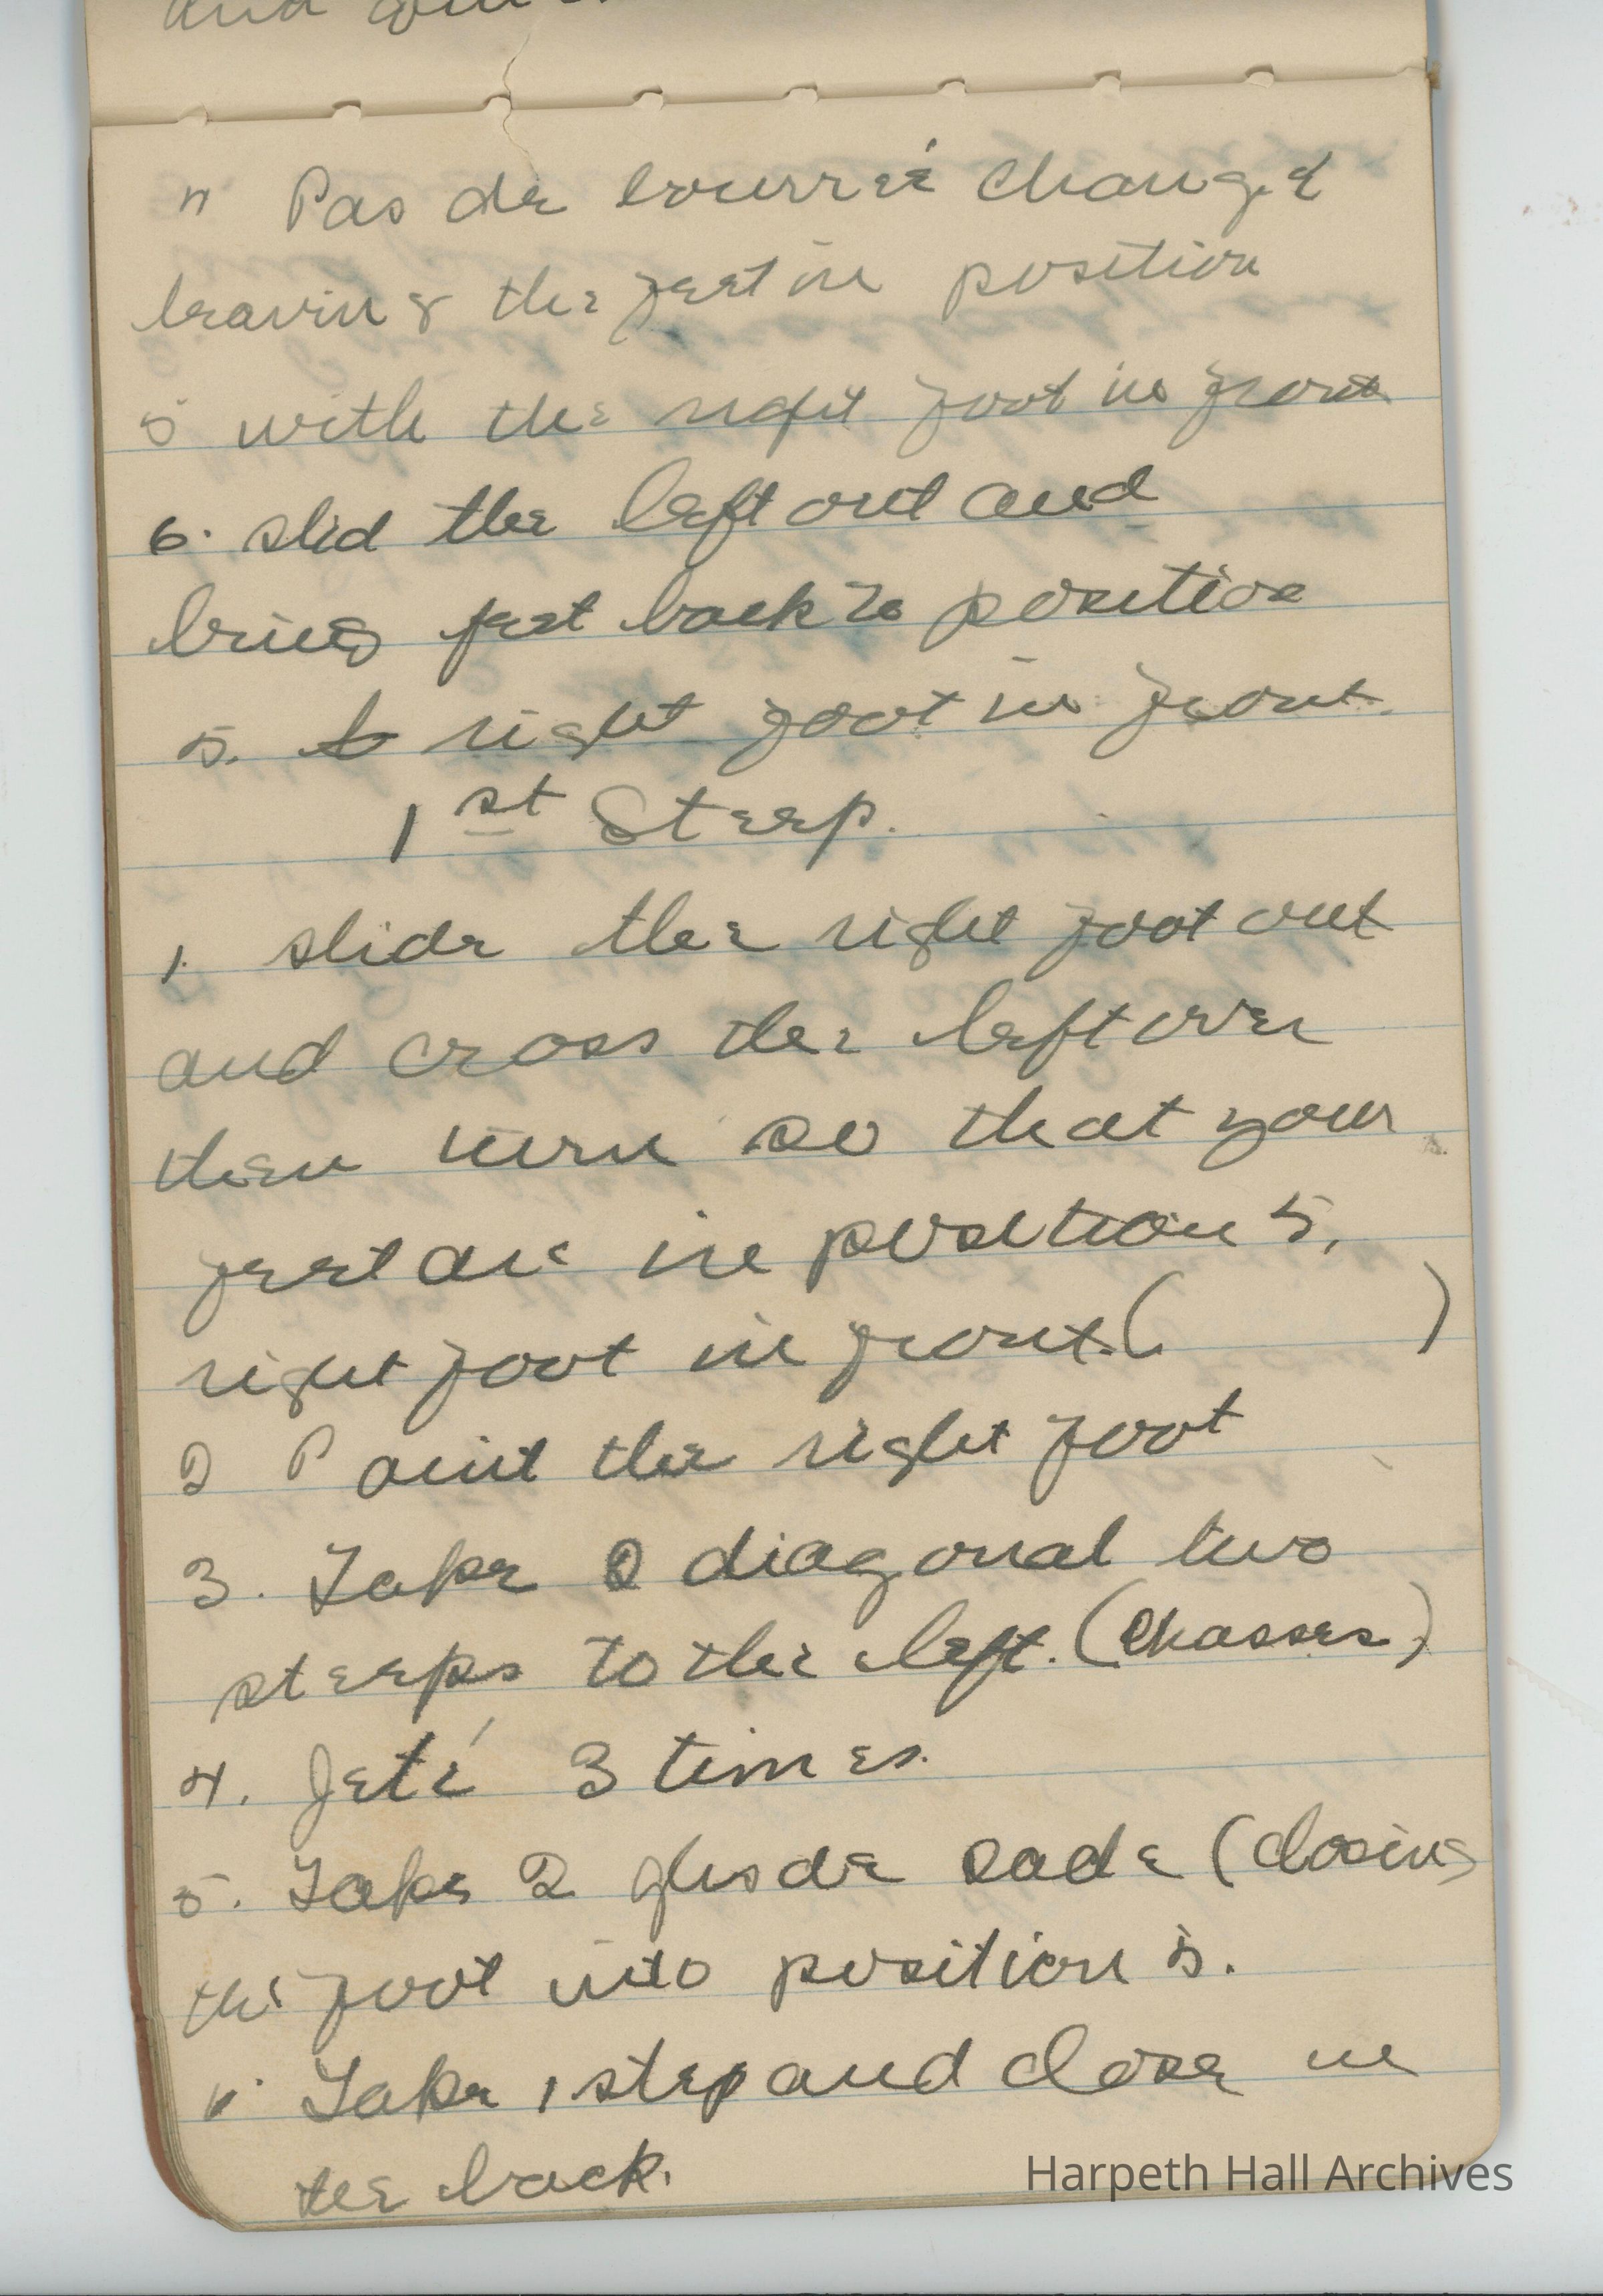 " Pas de bourreé change
leaving the feet in position
5 with the right foot in front
6. slid the left out and
bring feet back to position
5. right foot in front.
1st Steep.
1. slide the right foot out
and cross the left over
then turn so that your
feet are in position 5,
right foot in front. ( )
2 Point the right foot
3. Take 2 diagonal two
steeps to the left. (Chasses)
4. Jeté 3 times.
5. Take 2 (closing
the foot into position 5.
" Take 1 step and close in
the back.
Harpeth Hall Archives